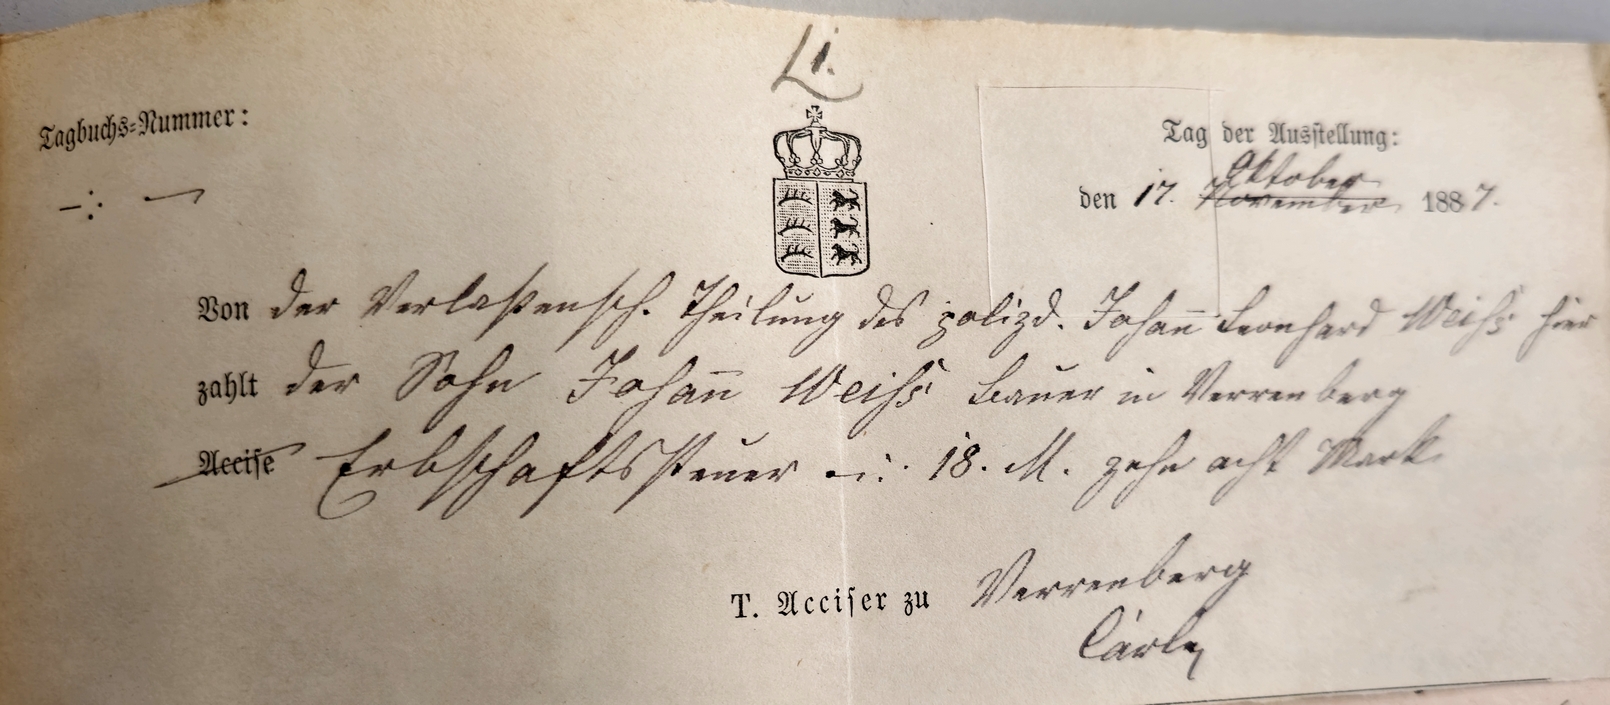 Li.
Tagbuchs-Nummer: Tag der Ausstellung:
Oktober
-: — den 17. November 1887.
Von der Verlaßensch. Theilung des Johann Leonhard Weiß hier
zahlt der Sohn Johann Weiß Bauer in Verrenberg
Accise Erbschaftssteuer 18. M. zehn acht Mark
T. Acciser zu Verrenberg